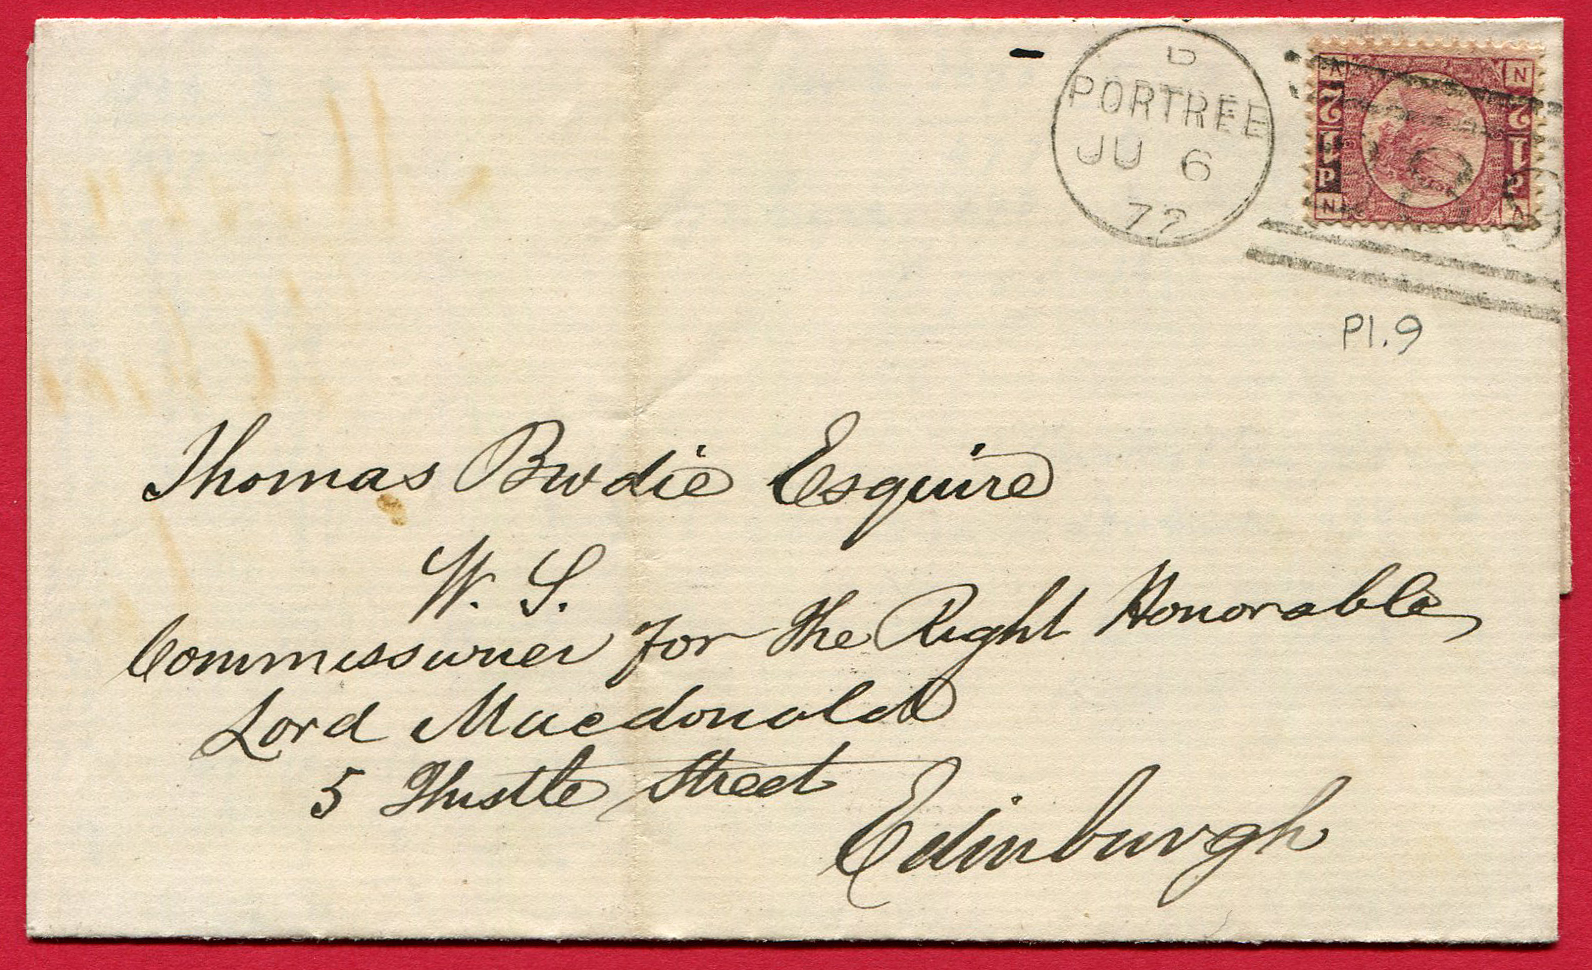 B
PORTREE
JU 6
72
N
N
½
½
P
P
N
Pl.9
Thomas Brodie Esquire
W. S.
Commissioner for the Right Honorable
Lord Macdonald
5 Thistle Street
Edinburgh